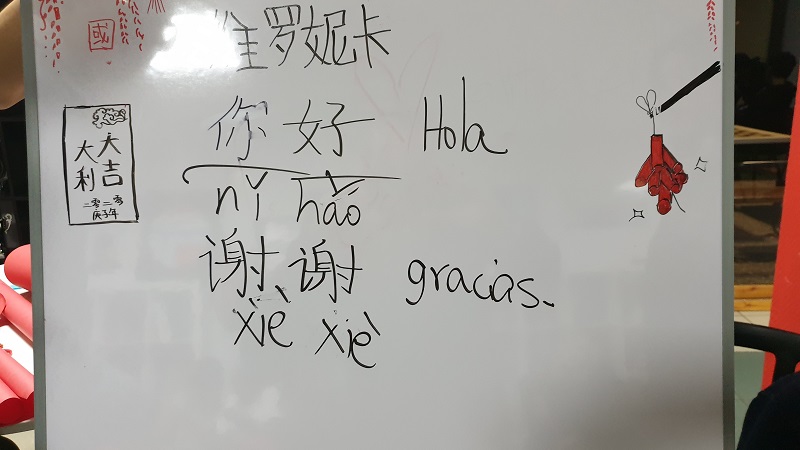 維罗妮卡
國
你好 Hola
nǐ hǎo
谢谢 gracias.
xiè xiè
大吉
大利
二零二零
庚子年